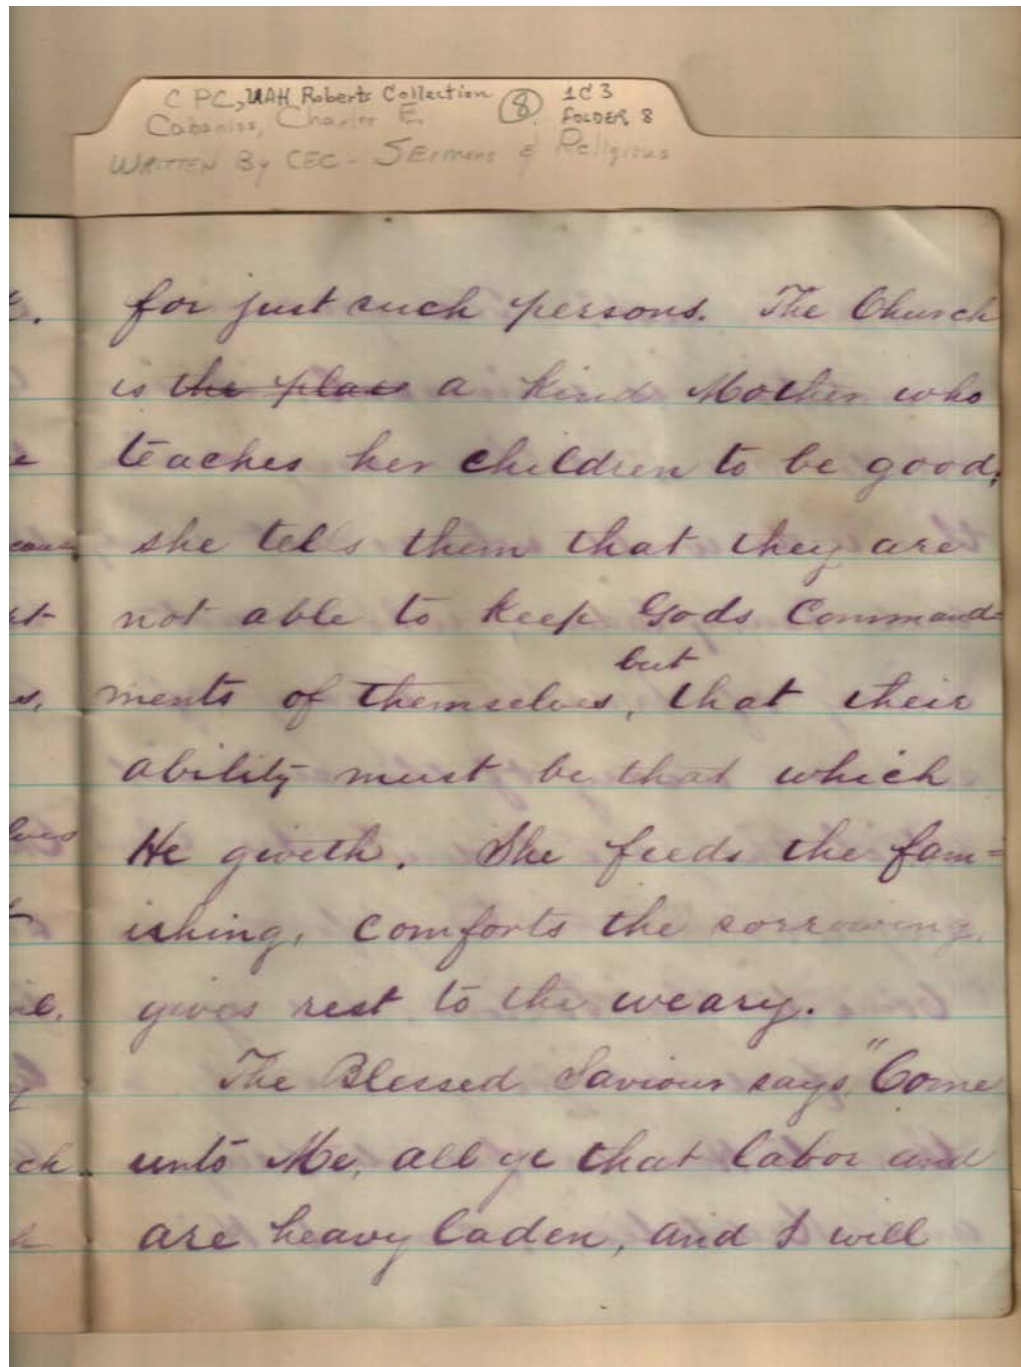 C PC, UAH Roberts Collection 8 1C3
Cabaniss, Charles E. FOLDER 8
WRITTEN By CEC - SErmons & Religious
for just such persons. The Church
is the place a kind Mother who
teaches her children to be good;
she tells them that they are
not able to keep Gods Command=
but
ments of themselves, that their
ability must be that which
He giveth. She feeds the fam=
ishing, comforts the sorrowing,
gives rest to the weary.
The Blessed Saviour says, "Come
unto Me, all ye that labor and
are heavy laden, and I will